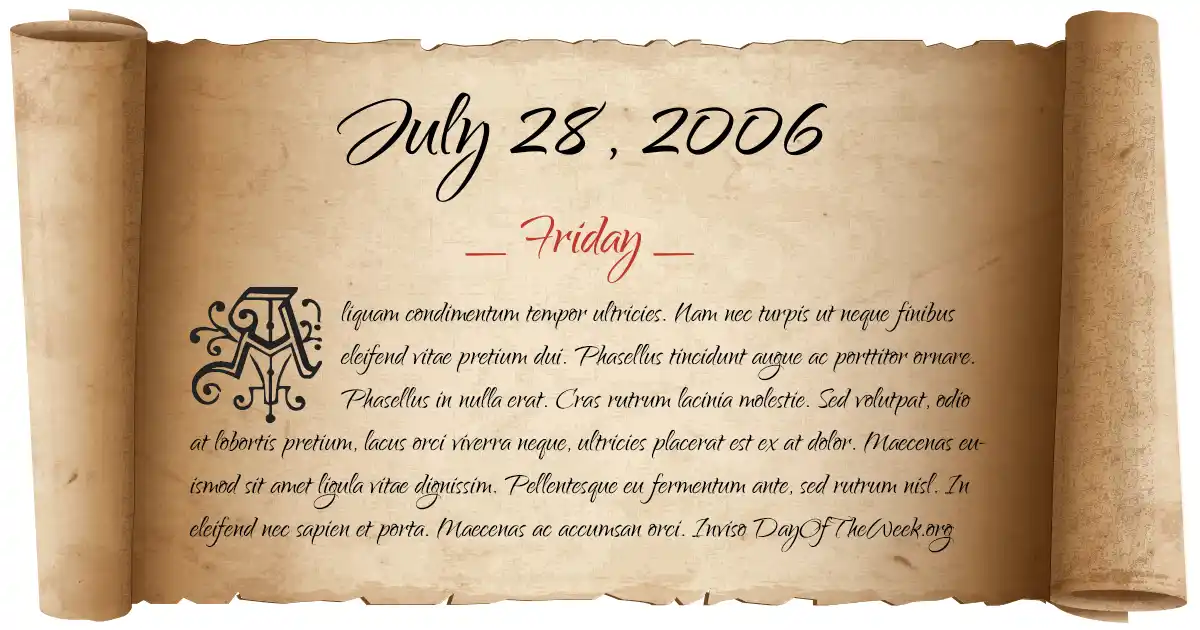 July 28, 2006
Friday
Aliquam condimentum tempor ultricies. Nam nec turpis ut neque finibus
eleifend vitae pretium dui. Phasellus tincidunt augue ac porttitor ornare.
Phasellus in nulla erat. Cras rutrum lacinia molestie. Sed volutpat, odio
at lobortis pretium, lacus orci viverra neque, ultricies placerat est ex at dolor. Maecenas eu-
ismod sit amet ligula vitae dignissim. Pellentesque eu fermentum ante, sed rutrum nisl. In
eleifend nec sapien et porta. Maecenas ac accumsan orci. Inviso DayOfTheWeek.org